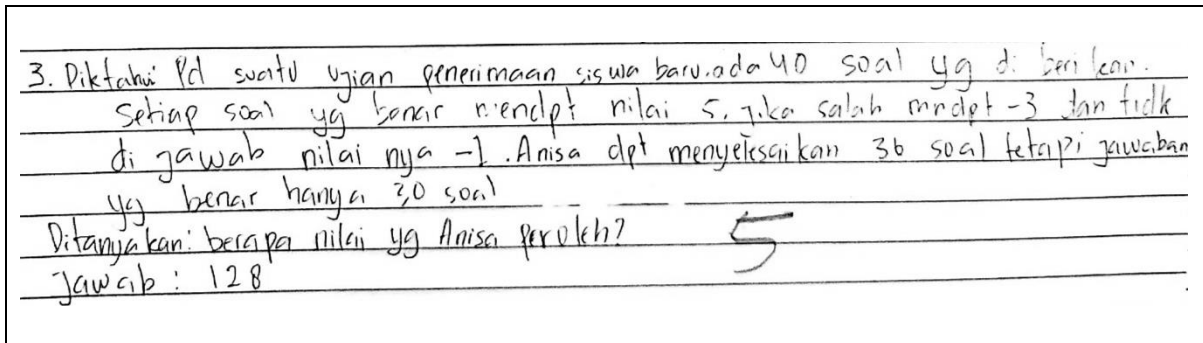 3. Diktahui Pd suatu ujian penerimaan siswa baru. ada 40 soal yg di beri kan.
Setiap soal yg benar mendpt nilai 5. jika salah mndpt -3 dan tidk
di jawab nilai nya -1. Anisa dpt menyelesaikan 36 soal tetapi jawaban
yg benar hanya 30 soal
Ditanyakan: berapa nilai yg Anisa peroleh?
5
Jawab : 128